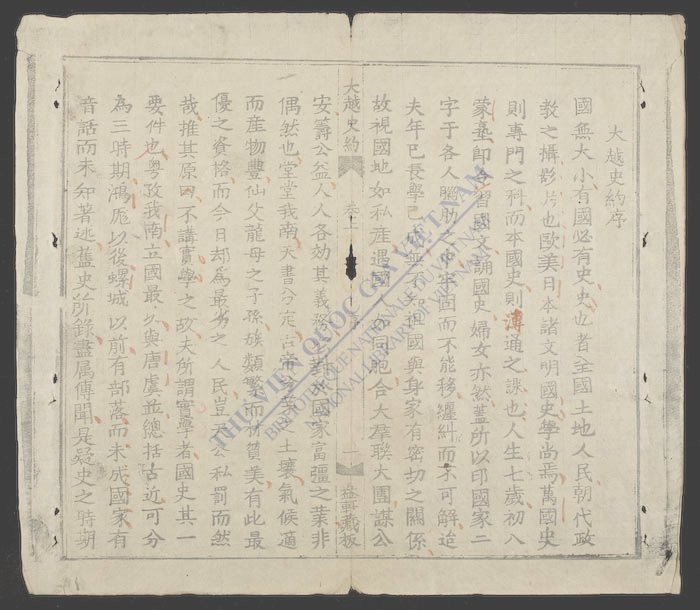 大越史約序
國無大小有國必有史史也者全國土地人民朝代政
教之攝影片也歐美日本諸文明國史學尚焉萬國史
則專門之科而本國史則溥通之課也人生七歲初入
蒙臺即各習國文誦國史婦女亦然蓋所以印國家二
字于各人腦肋之中牢固而不能移纏糾而不可解迨
夫年已長學已 無不知祖國與身家有密切之關係
故視國地如私產遇國人 同胞合大羣聯大團謀公
大越史約
卷
一
藏板
安籌公益人人各効其義務 國家富彊之業非
偶然也堂堂我南天書兮定古帝 土壤氣候適
而産物豐仙父龍母之子孫族類繁而材質美有此最
優之資格而今日却為最劣之人民豈天公私罰而然
哉推其原因不講實學之故夫所謂實學者國史其一
要件也粤孜我南立國最久與唐虞並總括古近可分
為三時期鴻厖以後螺城以前有部落而未成國家有
音話而未知著述舊史所錄盡属傳聞是疑史之時期
THƯ VIỆN QUỐC GIA VIỆT NAM
NATIONAL LIBRARY OF VIETNAM